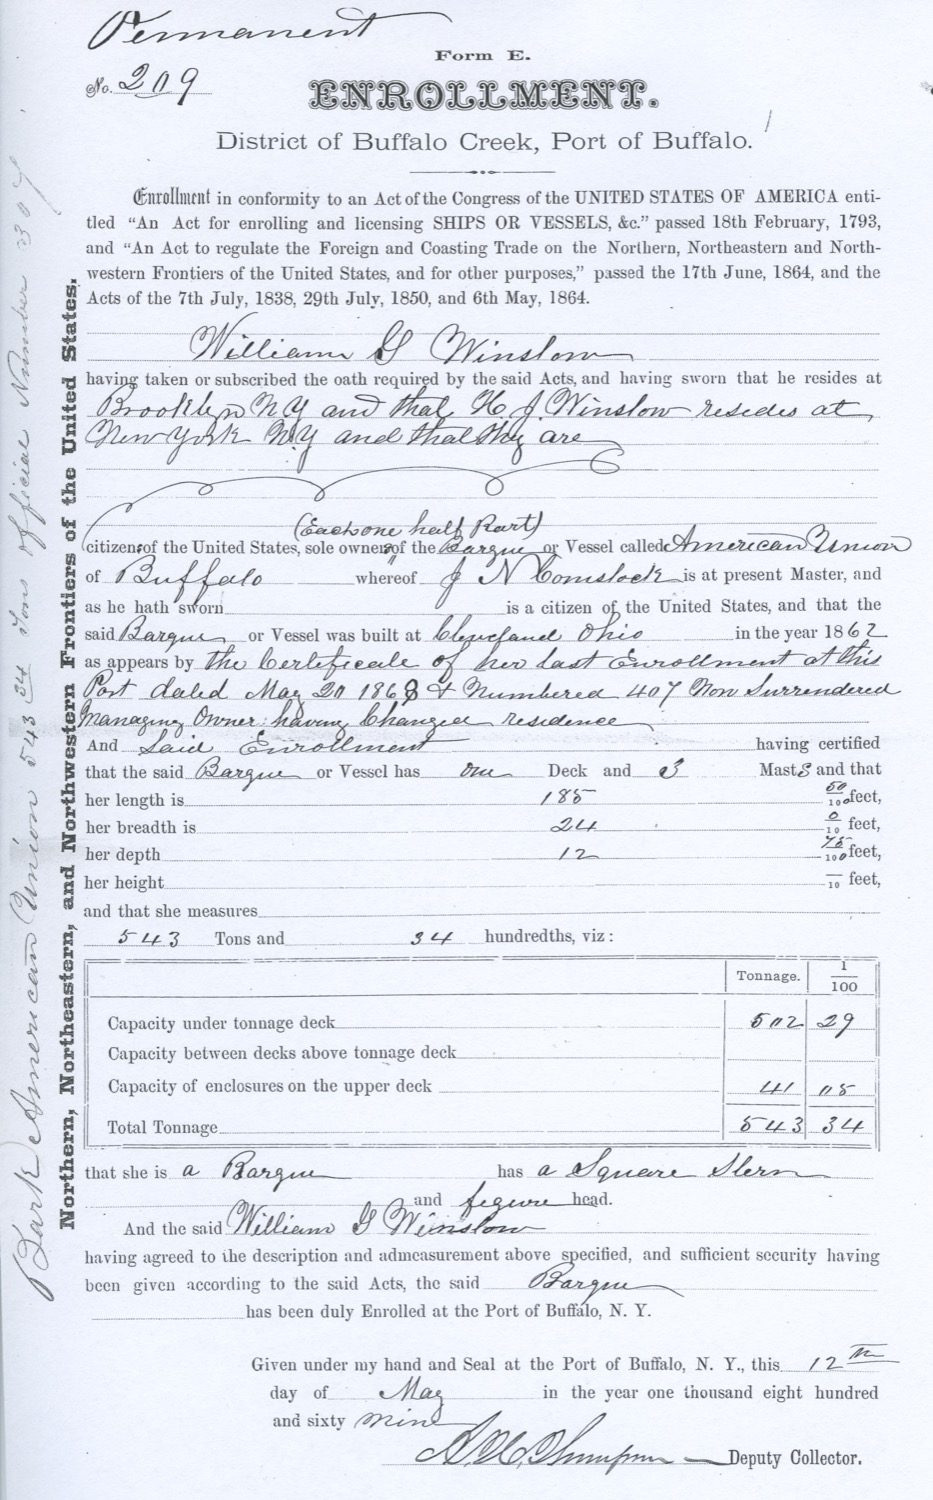 Permanent
Form E.
No. 209
ENROLLMENT.
District of Buffalo Creek, Port of Buffalo.
Enrollment in conformity to an Act of the Congress of the UNITED STATES OF AMERICA enti-
tled "An Act for enrolling and licensing SHIPS OR VESSELS, &c." passed 18th February, 1793,
and "An Act to regulate the Foreign and Coasting Trade on the Northern, Northeastern and North-
western Frontiers of the United States, and for other purposes," passed the 17th June, 1864, and the
Acts of the 7th July, 1838, 29th July, 1850, and 6th May, 1864.
William G Winslow
having taken or subscribed the oath required by the said Acts, and having sworn that he resides at
Brooklyn NY and that H. J. Winslow resides at
New York N.Y and that they are
(Each one half Part)
citizens of the United States, sole owners of the Barque or Vessel called American Union
of Buffalo whereof J N Comstock is at present Master, and
as he hath sworn is a citizen of the United States, and that the
said Barque or Vessel was built at Cleveland Ohio in the year 1862
as appears by the Certificate of her last Enrollment at this
Port dated May 20 1868 & Numbered 407 Now Surrendered
Managing Owner having Changed residence
And Said Enrollment having certified
that the said Barque or Vessel has one Deck and 3 Masts and that
her length is 185 50/100 feet,
her breadth is 24 0/10 feet,
her depth 12 75/100 feet,
her height /10 feet,
and that she measures
543 Tons and 34 hundredths, viz:
Tonnage. 1/100
Capacity under tonnage deck 502 29
Capacity between decks above tonnage deck
Capacity of enclosures on the upper deck 41 05
Total Tonnage 543 34
that she is a Barque has a Square Stern
and figure head.
And the said William G Winslow
having agreed to the description and admeasurement above specified, and sufficient security having
been given according to the said Acts, the said Barque
has been duly Enrolled at the Port of Buffalo, N. Y.
Given under my hand and Seal at the Port of Buffalo, N. Y., this 12th
day of May in the year one thousand eight hundred
and sixty nine
Thompson Deputy Collector.
Northern, Northeastern, and Northwestern Frontiers of the United States.
Bark American Union 543 34 Tons Official Number 307